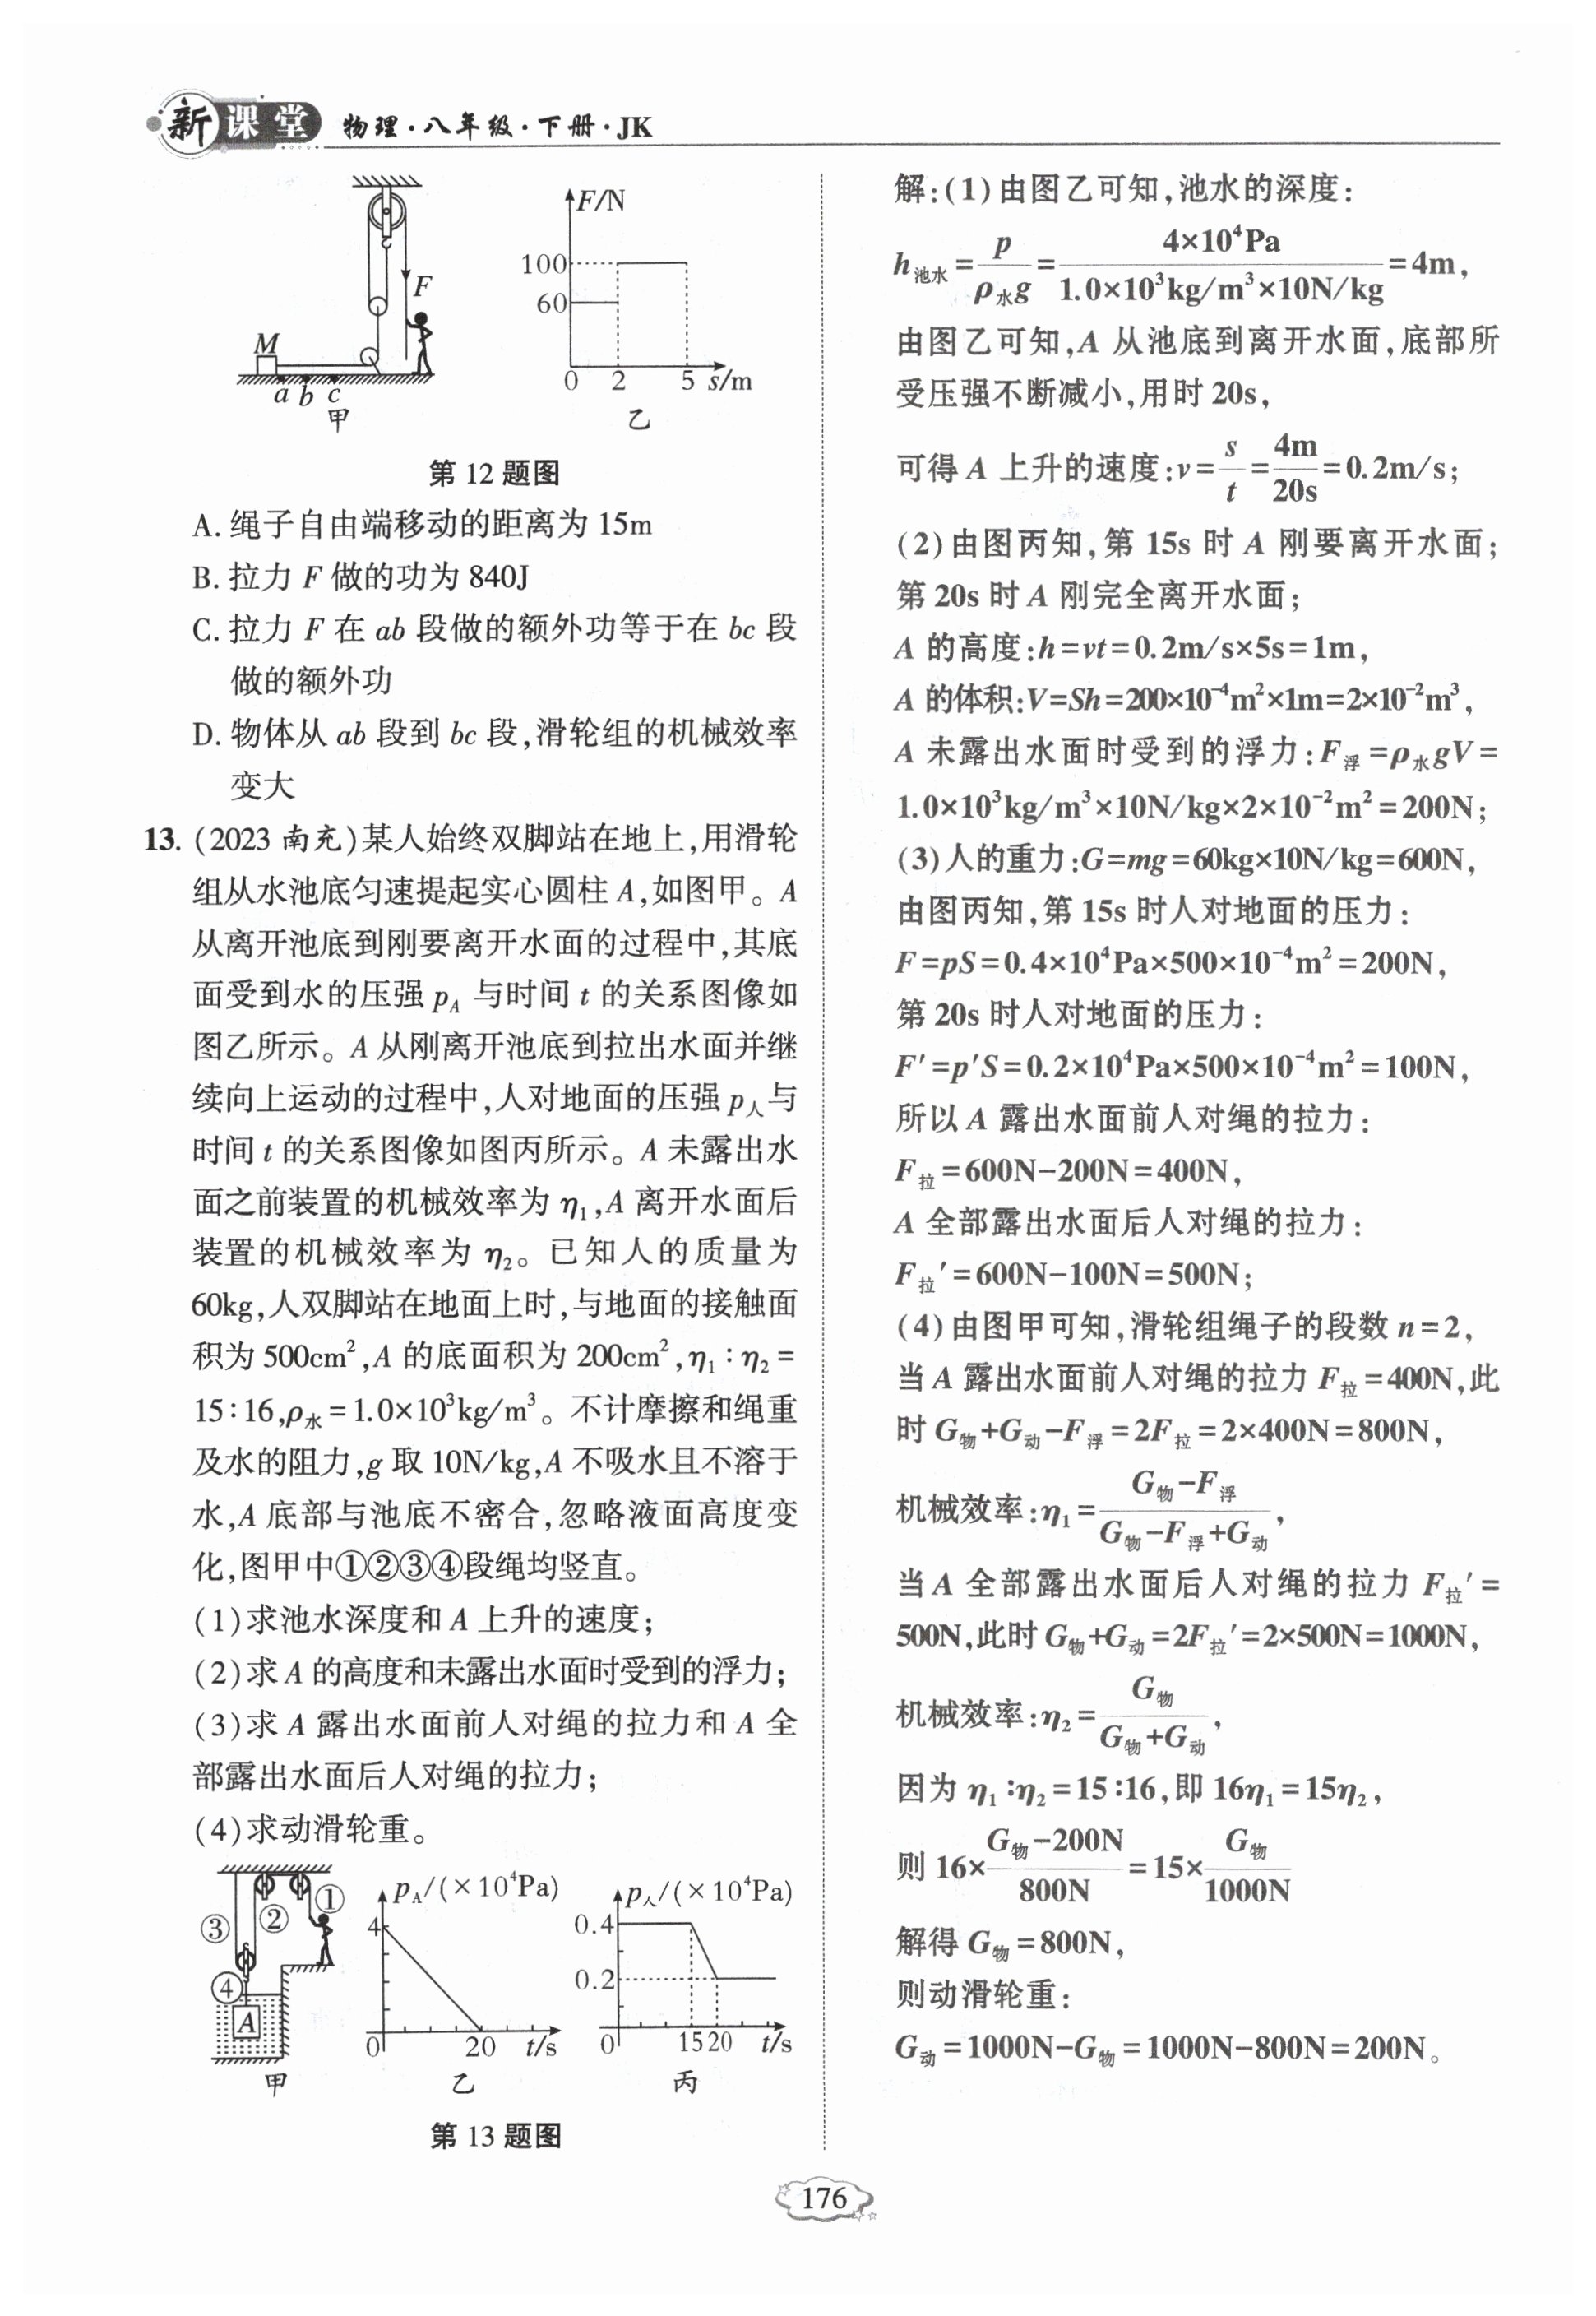 新课堂 物理·八年级·下册·JK
F
M
a b c
甲
F/N
100
60
0 2 5 s/m
乙
第12题图
A. 绳子自由端移动的距离为 15m
B. 拉力 F 做的功为 840J
C. 拉力 F 在 ab 段做的额外功等于在 bc 段
做的额外功
D. 物体从 ab 段到 bc 段,滑轮组的机械效率
变大
13. (2023 南充)某人始终双脚站在地上,用滑轮
组从水池底匀速提起实心圆柱 A,如图甲。A
从离开池底到刚要离开水面的过程中,其底
面受到水的压强 p_A 与时间 t 的关系图像如
图乙所示。A 从刚离开池底到拉出水面并继
续向上运动的过程中,人对地面的压强 p人与
时间 t 的关系图像如图丙所示。A 未露出水
面之前装置的机械效率为 η₁,A 离开水面后
装置的机械效率为 η₂。已知人的质量为
60kg,人双脚站在地面上时,与地面的接触面
积为 500cm²,A 的底面积为 200cm²,η₁∶η₂=
15∶16,ρ水=1.0×10³kg/m³。不计摩擦和绳重
及水的阻力,g 取 10N/kg,A 不吸水且不溶于
水,A 底部与池底不密合,忽略液面高度变
化,图甲中①②③④段绳均竖直。
(1)求池水深度和 A 上升的速度;
(2)求 A 的高度和未露出水面时受到的浮力;
(3)求 A 露出水面前人对绳的拉力和 A 全
部露出水面后人对绳的拉力;
(4)求动滑轮重。
①
②
③
④
A
甲
p_A/(×10⁴Pa)
4
0 20 t/s
乙
p人/(×10⁴Pa)
0.4
0.2
0 15 20 t/s
丙
第13题图
解:(1)由图乙可知,池水的深度:
h池水=p/(ρ水g)=4×10⁴Pa/(1.0×10³kg/m³×10N/kg)=4m,
由图乙可知,A 从池底到离开水面,底部所
受压强不断减小,用时 20s,
可得 A 上升的速度:v=s/t=4m/20s=0.2m/s;
(2)由图丙知,第 15s 时 A 刚要离开水面;
第 20s 时 A 刚完全离开水面;
A 的高度:h=vt=0.2m/s×5s=1m,
A 的体积:V=Sh=200×10⁻⁴m²×1m=2×10⁻²m³,
A 未露出水面时受到的浮力:F浮=ρ水gV=
1.0×10³kg/m³×10N/kg×2×10⁻²m²=200N;
(3)人的重力:G=mg=60kg×10N/kg=600N,
由图丙知,第 15s 时人对地面的压力:
F=pS=0.4×10⁴Pa×500×10⁻⁴m²=200N,
第 20s 时人对地面的压力:
F′=p′S=0.2×10⁴Pa×500×10⁻⁴m²=100N,
所以 A 露出水面前人对绳的拉力:
F拉=600N-200N=400N,
A 全部露出水面后人对绳的拉力:
F拉′=600N-100N=500N;
(4)由图甲可知,滑轮组绳子的段数 n=2,
当 A 露出水面前人对绳的拉力 F拉=400N,此
时 G物+G动-F浮=2F拉=2×400N=800N,
机械效率:η₁=(G物-F浮)/(G物-F浮+G动),
当 A 全部露出水面后人对绳的拉力 F拉′=
500N,此时 G物+G动=2F拉′=2×500N=1000N,
机械效率:η₂=G物/(G物+G动),
因为 η₁∶η₂=15∶16,即 16η₁=15η₂,
则 16×(G物-200N)/800N=15×G物/1000N
解得 G物=800N,
则动滑轮重:
G动=1000N-G物=1000N-800N=200N。
176